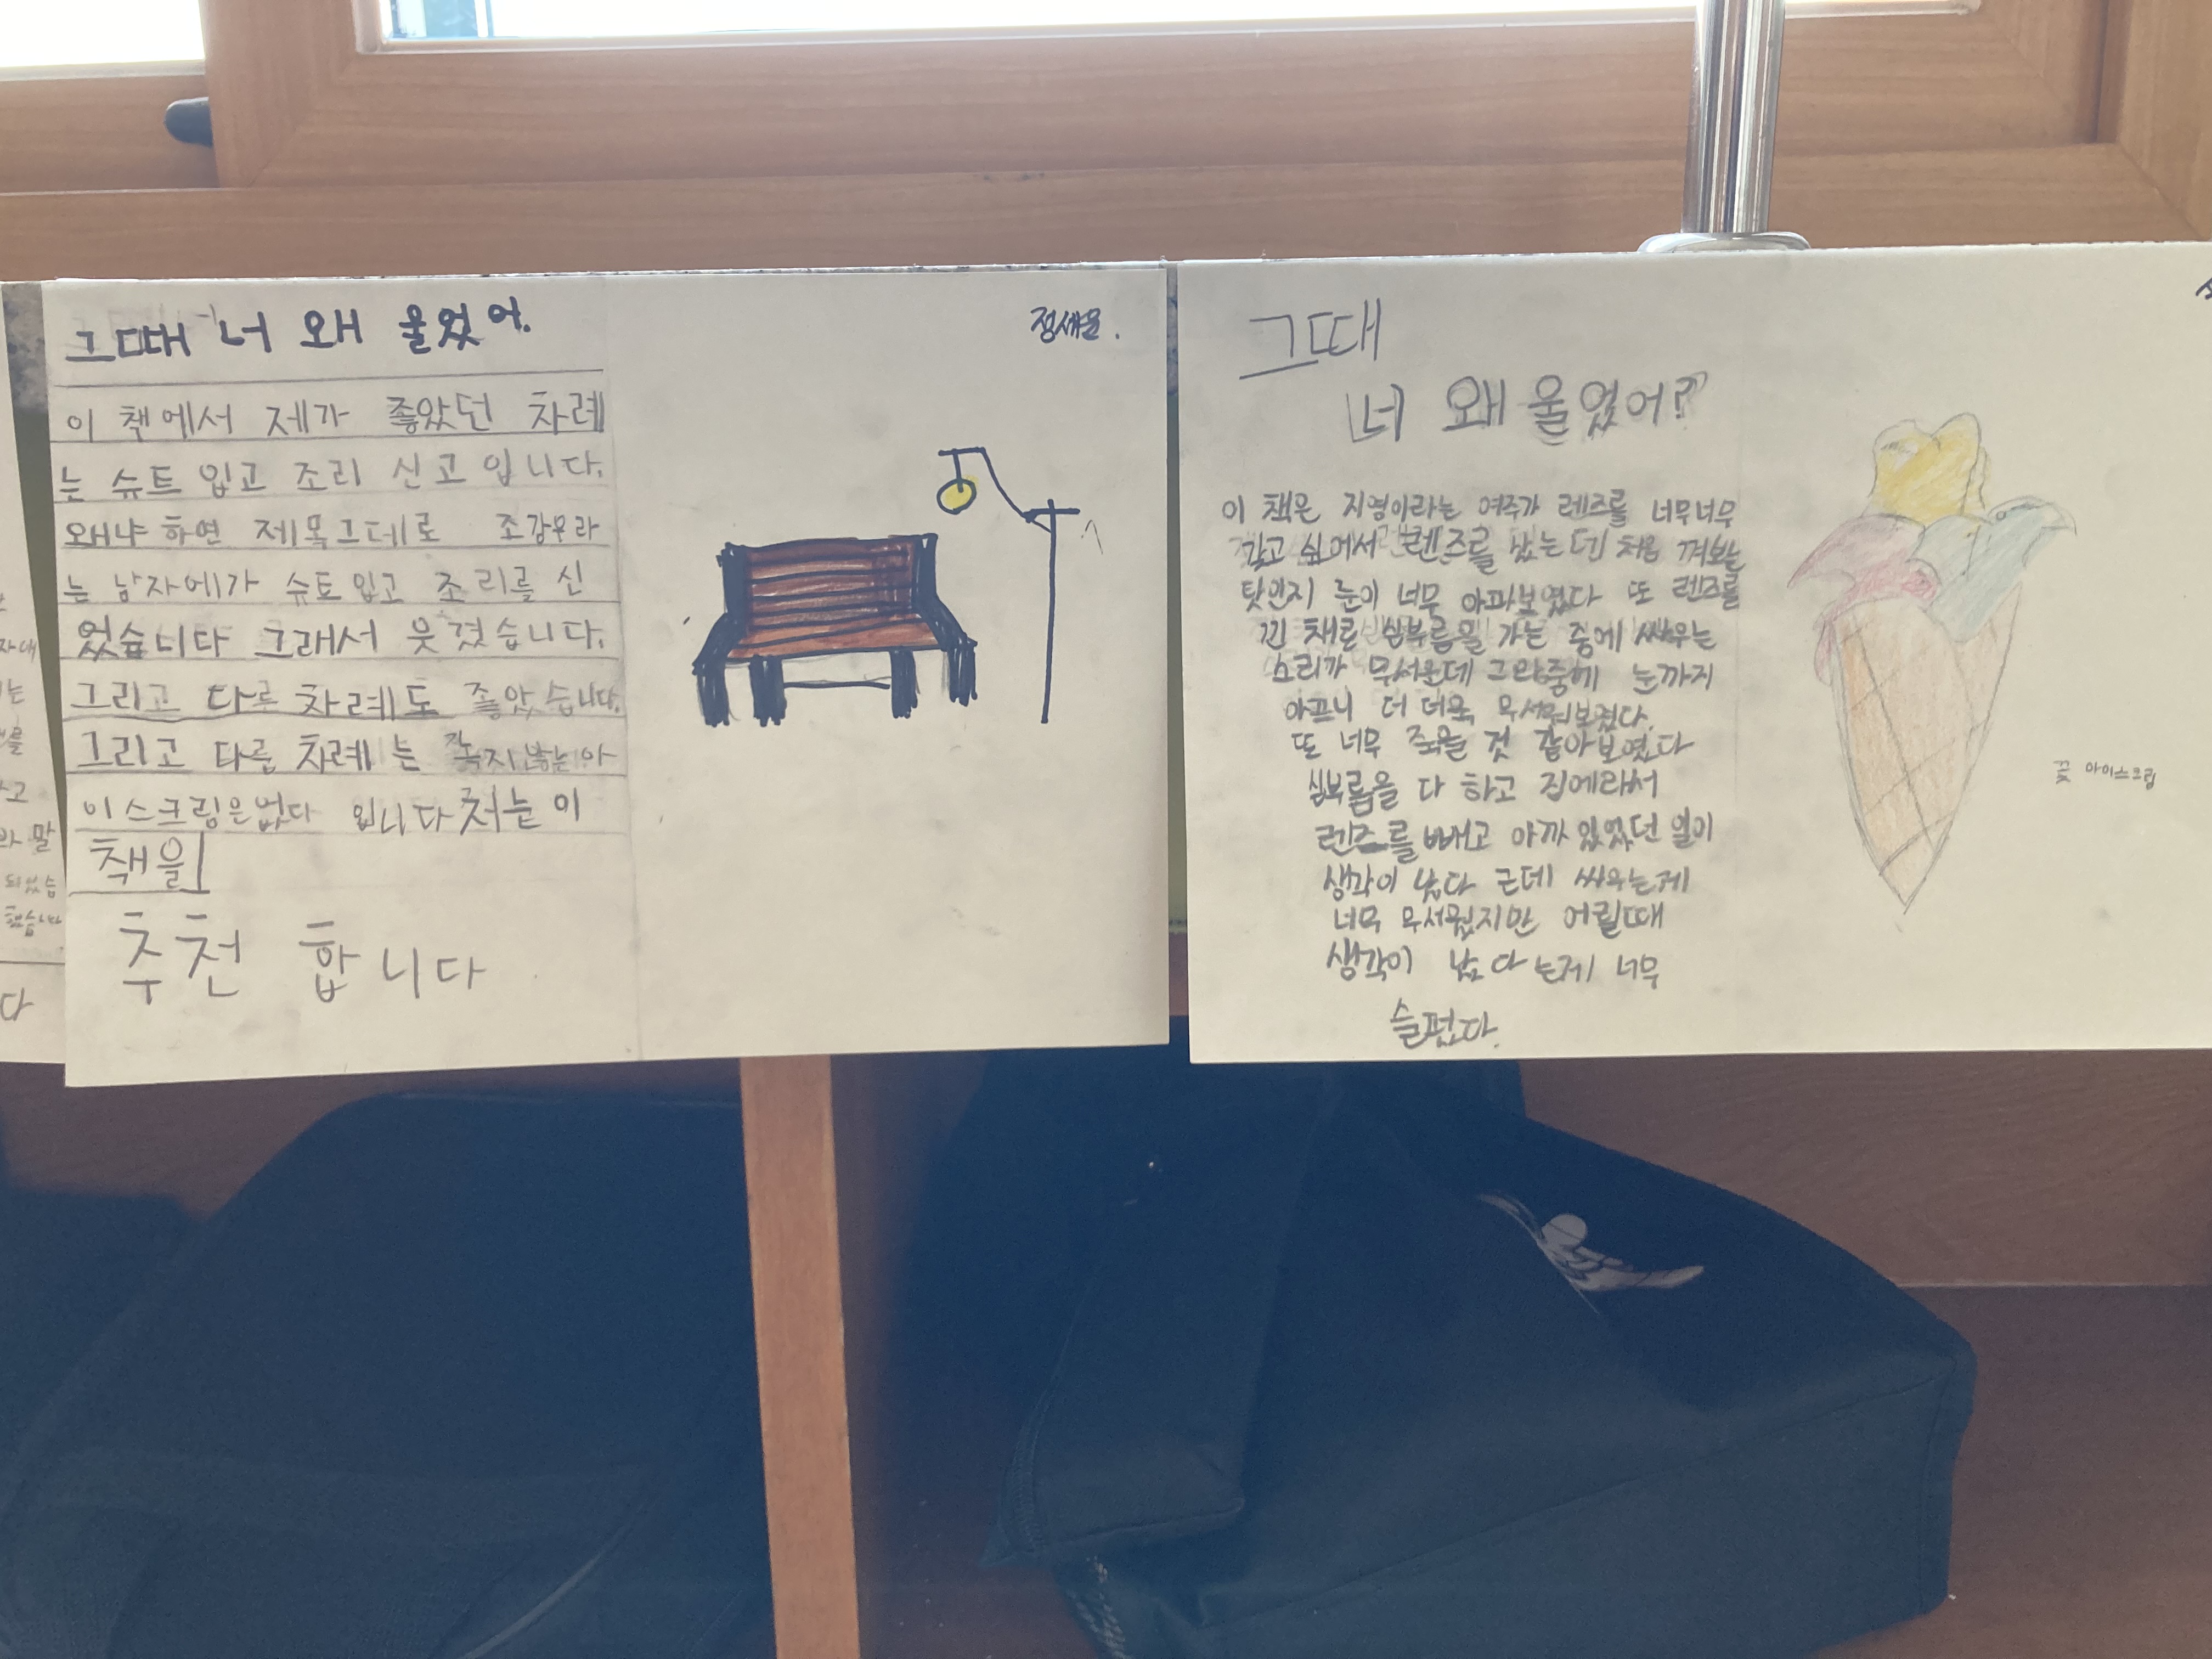 그때 너 왜 울었어.
정세윤.
이 책에서 제가 좋았던 차례
는 슈트 입고 조리 신고 입니다.
왜냐 하면 제목그데로 조강우라
는 남자에가 슈트입고 조리를 신
었습니다 그래서 웃겼습니다.
그리고 다른 차례도 좋았습니다.
그리고 다른 차례는 녹지않는아
이스크림은없다 입니다 저는 이
책을
추천 합니다
그때
너 왜 울었어?
이 책은 지영이라는 여주가 렌즈를 너무너무
갖고 싶에서 렌즈를 샀는데 처음 껴보는
탓인지 눈이 너무 아파보였다 또 렌즈를
낀 채로 심부름을 가는 중에 싸우는
소리가 무서운데 그와중에 눈까지
아프니 더 더욱 무서워보였다.
또 너무 죽을 것 같아보였다
심부름을 다 하고 집에와서
렌즈를 빼고 아까 있었던 일이
생각이 났다 근데 싸우는게
너무 무서웠지만 어릴때
생각이 났다는게 너무
슬펐다.
꽃 아이스크림
자대
는
를
고
라 말
되었습
했습니다
다